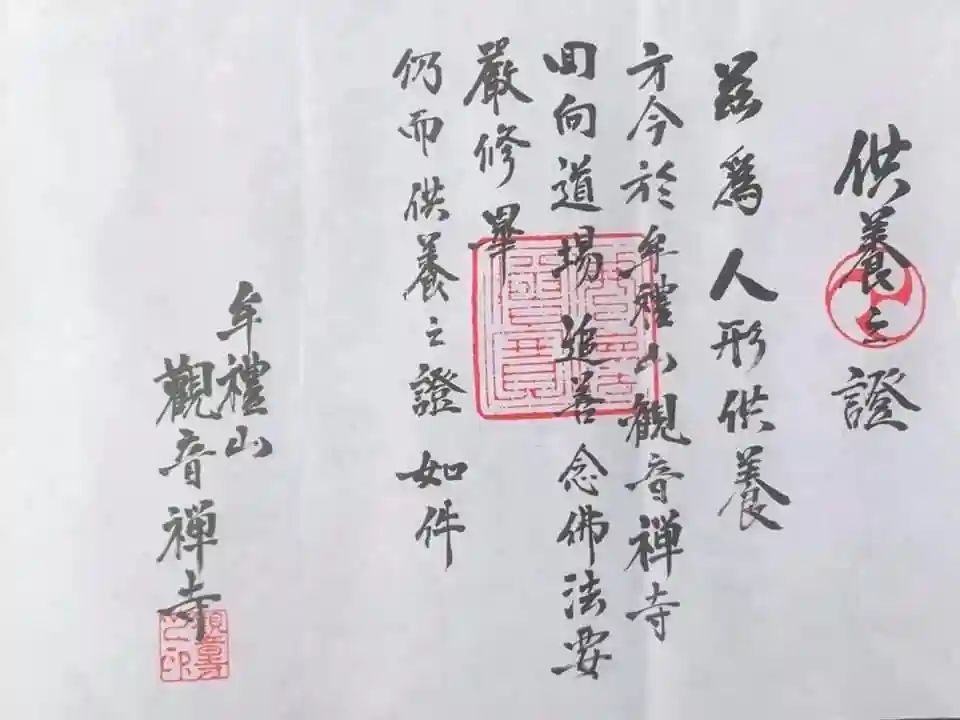 供養之證
茲爲人形供養
方今於牟禮山觀音禅寺
回向道場追善念佛法要
嚴修畢
仍而供養之證如件
牟禮山
觀音禅寺
觀音寺之印